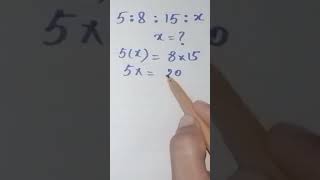 5:8:15:x
x=?
5(x) = 8×15
5x = 20